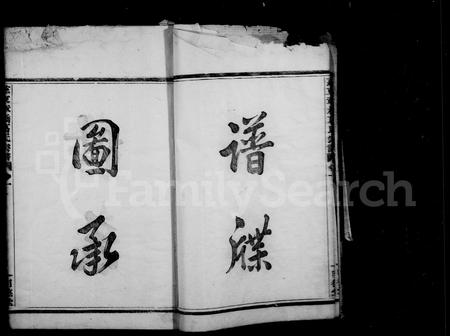 譜牒
圖承
FamilySearch